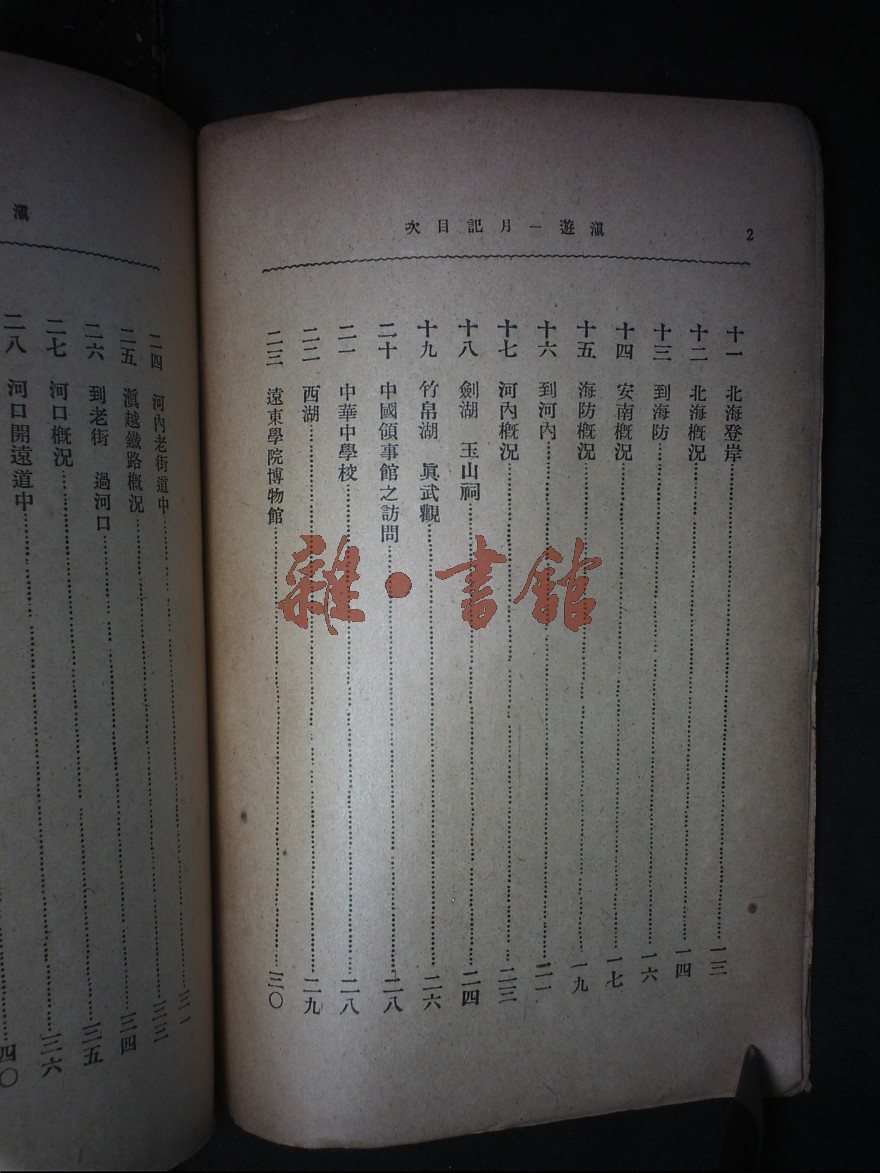 2
滇遊一月記目次
十一 北海登岸……一三
十二 北海概況……一四
十三 到海防……一六
十四 安南概況……一七
十五 海防概況……一九
十六 到河內……二一
十七 河內概況……二三
十八 劍湖 玉山祠……二四
十九 竹帛湖 眞武觀……二六
二十 中國領事館之訪問……二八
二一 中華中學校……二八
二二 西湖……二九
二三 遠東學院博物館……三〇
滇
二四 河內老街道中……三一
二五 滇越鐵路概況……三三
二六 到老街 過河口……三四
二七 河口概況……三五
二八 河口開遠道中……三六
四〇
雜·書館